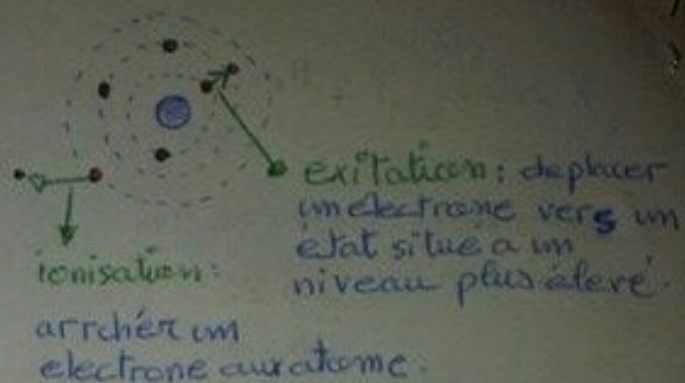 exitation: deplacer
un électrone vers un
état situé a un
niveau plus élevé.
ionisation:
arrchér un
electrone aux atome.